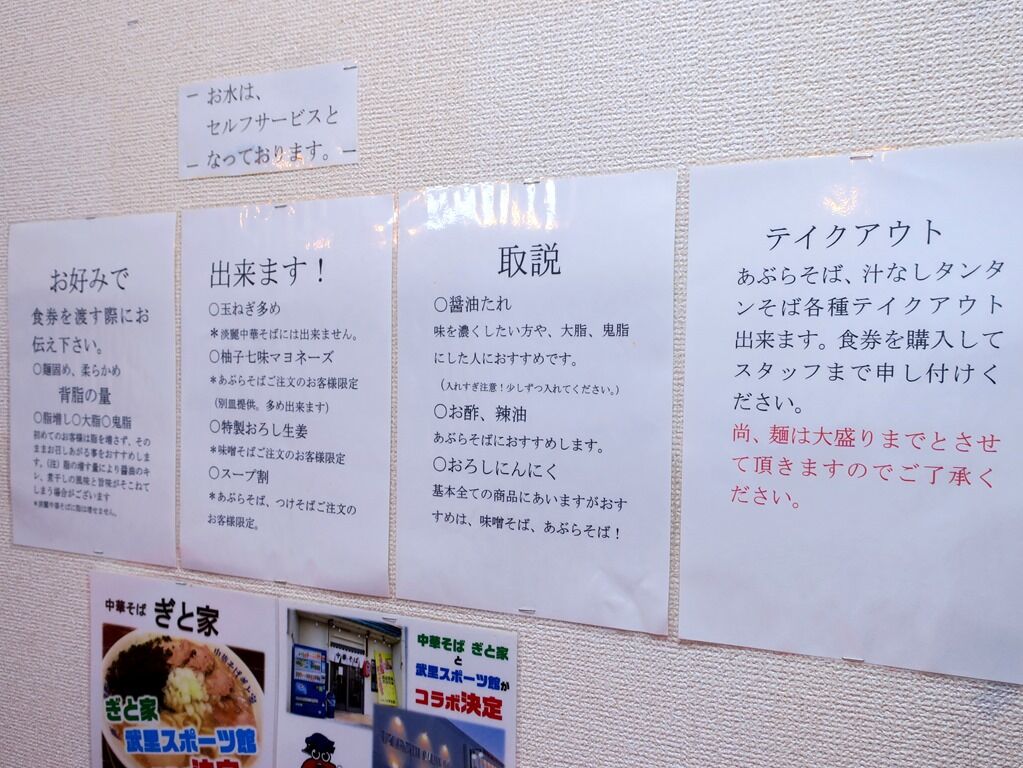 お水は、
セルフサービスと
なっております。
お好みで
食券を渡す際にお
伝え下さい。
○麺固め、柔らかめ
背脂の量
○脂増し○大脂○鬼脂
初めてのお客様は脂を増さず、その
ままお召しあがる事をおすすめしま
す。（注）脂の増す量により醤油のキ
レ、煮干しの風味と旨味がそこねて
しまう場合がございます
*淡麗中華そばに脂は増せません。
出来ます！
○玉ねぎ多め
*淡麗中華そばには出来ません。
○柚子七味マヨネーズ
*あぶらそばご注文のお客様限定
（別皿提供。多め出来ます）
○特製おろし生姜
*味噌そばご注文のお客様限定
○スープ割
*あぶらそば、つけそばご注文の
お客様限定。
取説
○醤油たれ
味を濃くしたい方や、大脂、鬼脂
にした人におすすめです。
（入れすぎ注意！少しずつ入れてください。）
○お酢、辣油
あぶらそばにおすすめします。
○おろしにんにく
基本全ての商品にあいますがおす
すめは、味噌そば、あぶらそば！
テイクアウト
あぶらそば、汁なしタンタ
ンそば各種テイクアウト
出来ます。食券を購入して
スタッフまで申し付けく
ださい。
尚、麺は大盛りまでとさせ
て頂きますのでご了承く
ださい。
中華そば ぎと家
中華そばぎと家
ぎと家
武里スポーツ館
決定
中華そば
中華そば ぎと家
と
武里スポーツ館が
コラボ決定